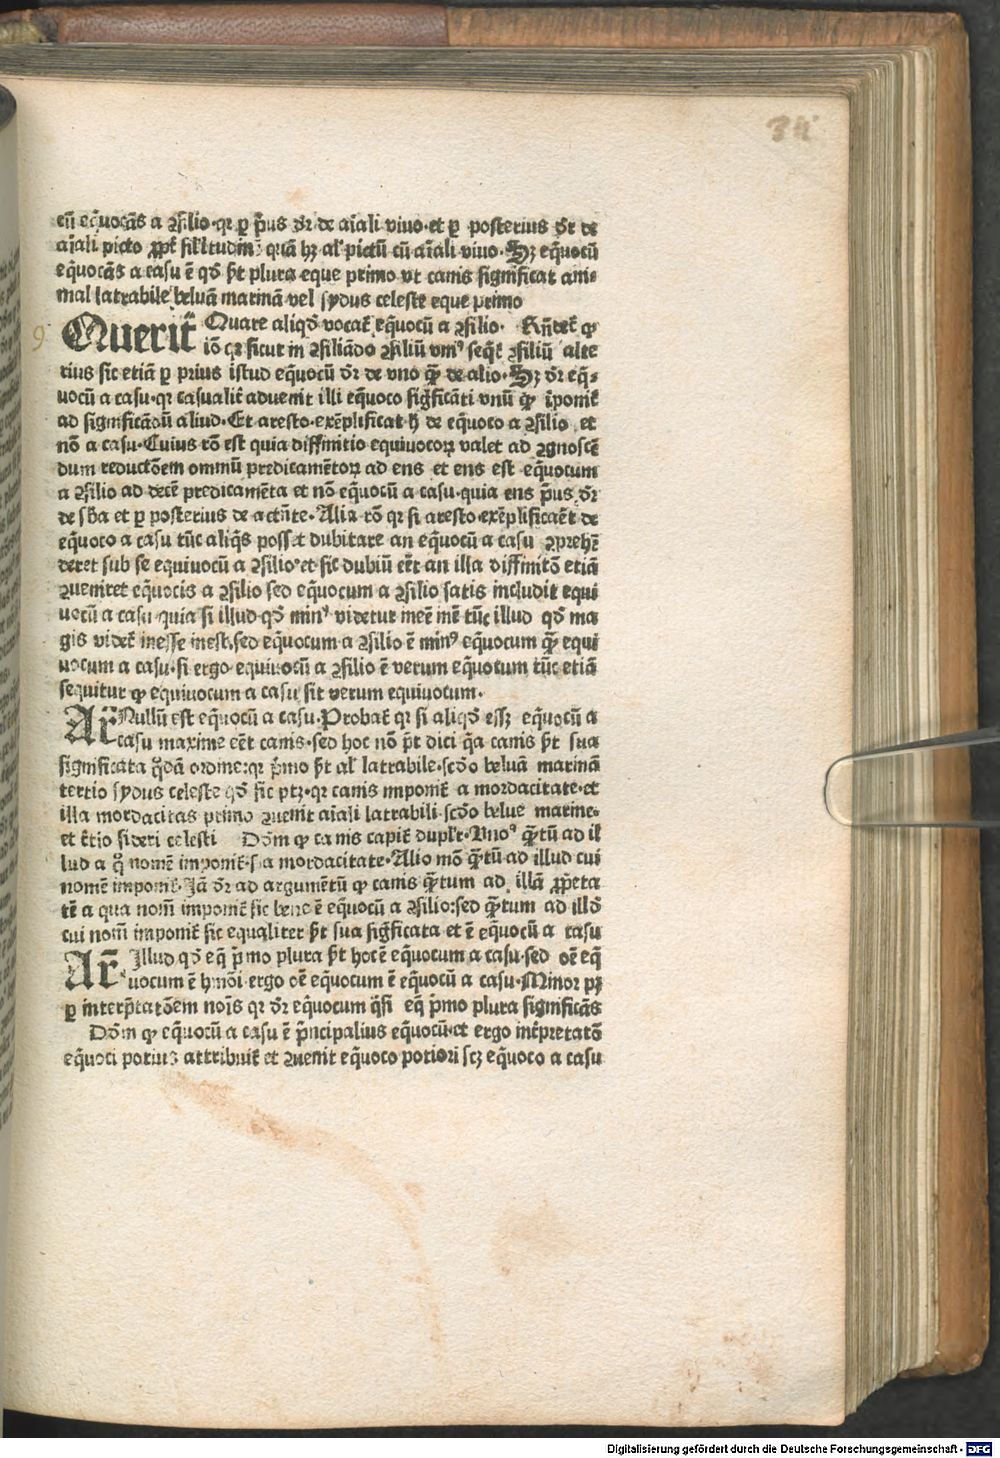 34
cū eq̄uocās a ꝯsilio·qꝛ ꝑ p̄us dr̄ de aīali viuo·et ꝑ posterius dr̄ de
aīali picto ꝓpt̄ sil'itudinē quā hꝫ al' pictū cū aīali viuo·Sꝫ eq̄uocū
eq̄uocās a casu ē qd̄ sīt plura eque primo vt canis significat ani-
mal latrabile beluā marinā vel sydus celeste eque primo
9 Queritr̄ Quare aliqd̄ vocat̄ eq̄uocū a ꝯsilio· Rn̄det̄ ꝙ
iō qꝛ sicut in ꝯsiliādo ꝯsiliū vniꝰ seqt̄ ꝯsiliū alte
rius sic etiā ꝑ prius istud eq̄uocū dr̄ de vno q̄ꝫ de alio·Sꝫ dr̄ eq̄-
uocū a casu·qꝛ casualit̄ aduenit illi equoco sig̅ficāti vnū ꝙ īponit̄
ad significādū aliud·Et aresto·exēplificat h̄ de equoco a ꝯsilio et
nō a casu·Cuius rō est quia diffinitio equiuocoꝝ valet ad ꝯgnoscē
dum reductōem omniū predicamētoꝝ ad ens et ens est eq̄uocum
a ꝯsilio ad decē predicamēta et nō eq̄uocū a casu·quia ens p̄us dr̄
de sb̄a et ꝑ posterius de accn̄te·Alia rō qꝛ si aresto·exēplificaēt de
eq̄uoco a casu tūc aliq̄s posset dubitare an eq̄uocū a casu ꝯprehē
deret sub se equiuocū a ꝯsilio·et sic dubiū ēēt an illa diffinitō etiā
ꝯueniret eq̄uocis a ꝯsilio sed eq̄uocum a ꝯsilio satis includit equi
uocū a casu quia si illud qd̄ minꝰ videtur ineē inē tūc illud qd̄ ma
gis videt̄ inesse inest·sed eq̄uocum a ꝯsilio ē minꝰ eq̄uocum q̄ꝫ equi
uocum a casu·si ergo equiuocū a ꝯsilio ē verum eq̄uocum tūc etiā
sequitur ꝙ equiuocum a casu sit verum equiuocum·
Ar̄ Nullū est eq̄uocū a casu·Probat̄ qꝛ si aliqd̄ essꝫ eq̄uocū a
casu maxime eēt canis·sed hoc nō p̄t dici q̄a canis sīt sua
significata q̄dā ordine:qꝛ p̄mo sīt al' latrabile·scd̄o beluā marinā
tertio sydus celeste qd̄ sic ptꝫ·qꝛ canis imponit̄ a mordacitate·et
illa mordacitas primo ꝯuenit aīali latrabili·scd̄o belue marine·
et t̄tio sideri celesti Dōm ꝙ canis capit̄ duplr̄·Vnoꝰ q̄ꝫtū ad il
lud a q̄ nomē imponit̄·s̄ a mordacitate·Alio mō q̄ꝫtū ad illud cui
nomē imponit̄·Jā dr̄ ad argumētū ꝙ canis q̄ꝫtum ad illā ꝓp̄eta
tē a qua nom̄ imponit̄ sic bene ē eq̄uocū a ꝯsilio:sed q̄ꝫtum ad illd̄
cui nom̄ imponit̄ sic equaliter sīt sua sig̅ficata et ē eq̄uocū a casu
Ar̄ Illud qd̄ eq̄ p̄mo plura sīt hoc ē equocum a casu·sed oē eq̄
uocum ē hmōi·ergo oē eq̄uocum ē eq̄uocū a casu·Minor pꝫ
ꝑ interp̄tatōem noīs qꝛ dr̄ eq̄uocum q̄si eq̄ p̄mo plura significās
Dōm ꝙ eq̄uocū a casu ē p̄ncipalius eq̄uocū·et ergo int̄pretatō
eq̄uoci potius attribuit̄ et ꝯuenit eq̄uoco potiori scꝫ eq̄uoco a casu
Digitalisierung gefördert durch die Deutsche Forschungsgemeinschaft - DFG